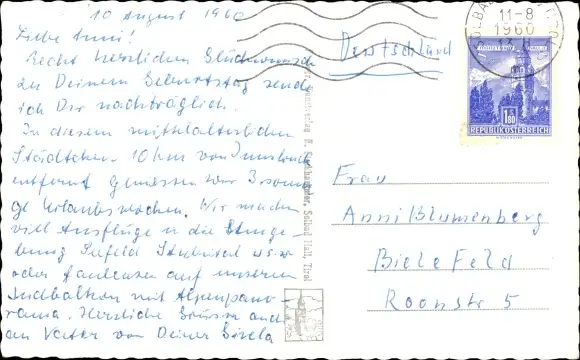 10 August 1960
Liebe Anni!
Recht herzlichen Glückwunsch
zu Deinem Geburtstag sende
ich Dir nachträglich.
In diesem mittelalterlichen
Städtchen 10 km von Innsbruck
entfernt geniessen wir 3 sonni-
ge Urlaubswochen. Wir machen
viel Ausflüge in die Umge-
bung Seefeld Stubaital u.s.w.
oder faulenzen auf unserem
Südbalkon mit Alpenpano-
rama. Herzliche Grüsse auch
an Vater von Deiner Gisela
Deutschland
11-8
1960
REPUBLIK ÖSTERREICH
1.80
Solbad Hall, Tirol
Frau
Anni Blumenberg
Bielefeld
Roonstr 5